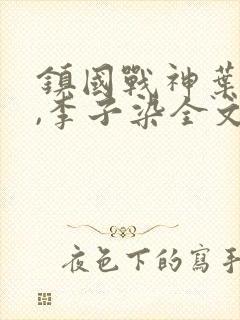 鎮國戰神葉
,李子染全文
夜色下的寫手